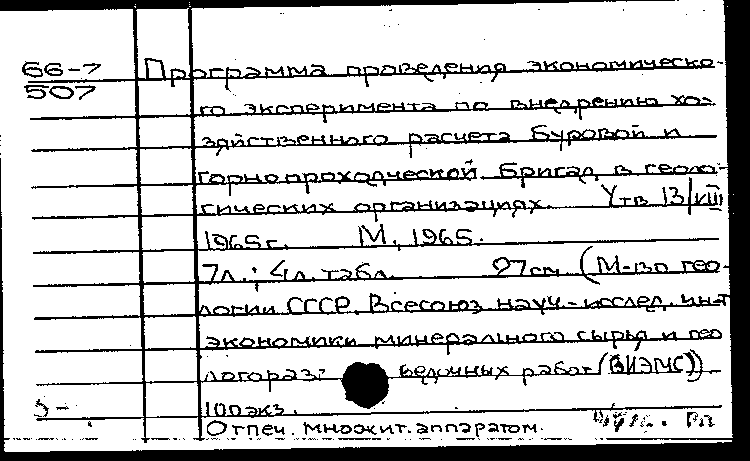 66-7
507
Программа проведения экономическо-
го эксперимента по внедрению хо-
зяйственного расчета Буровой и
горнопроходческой бригад в геоло-
гических организациях. Утв 13/VIII
1965г. М, 1965.
7л.; 4л. табл. 27см (М-во гео-
логии СССР. Всесоюз науч.-исслед. ин-т
экономики минерального сырья и гео
логораз- ведочных работ (ВИЭМС))
100 экз.
Отпеч. множит. аппаратом.